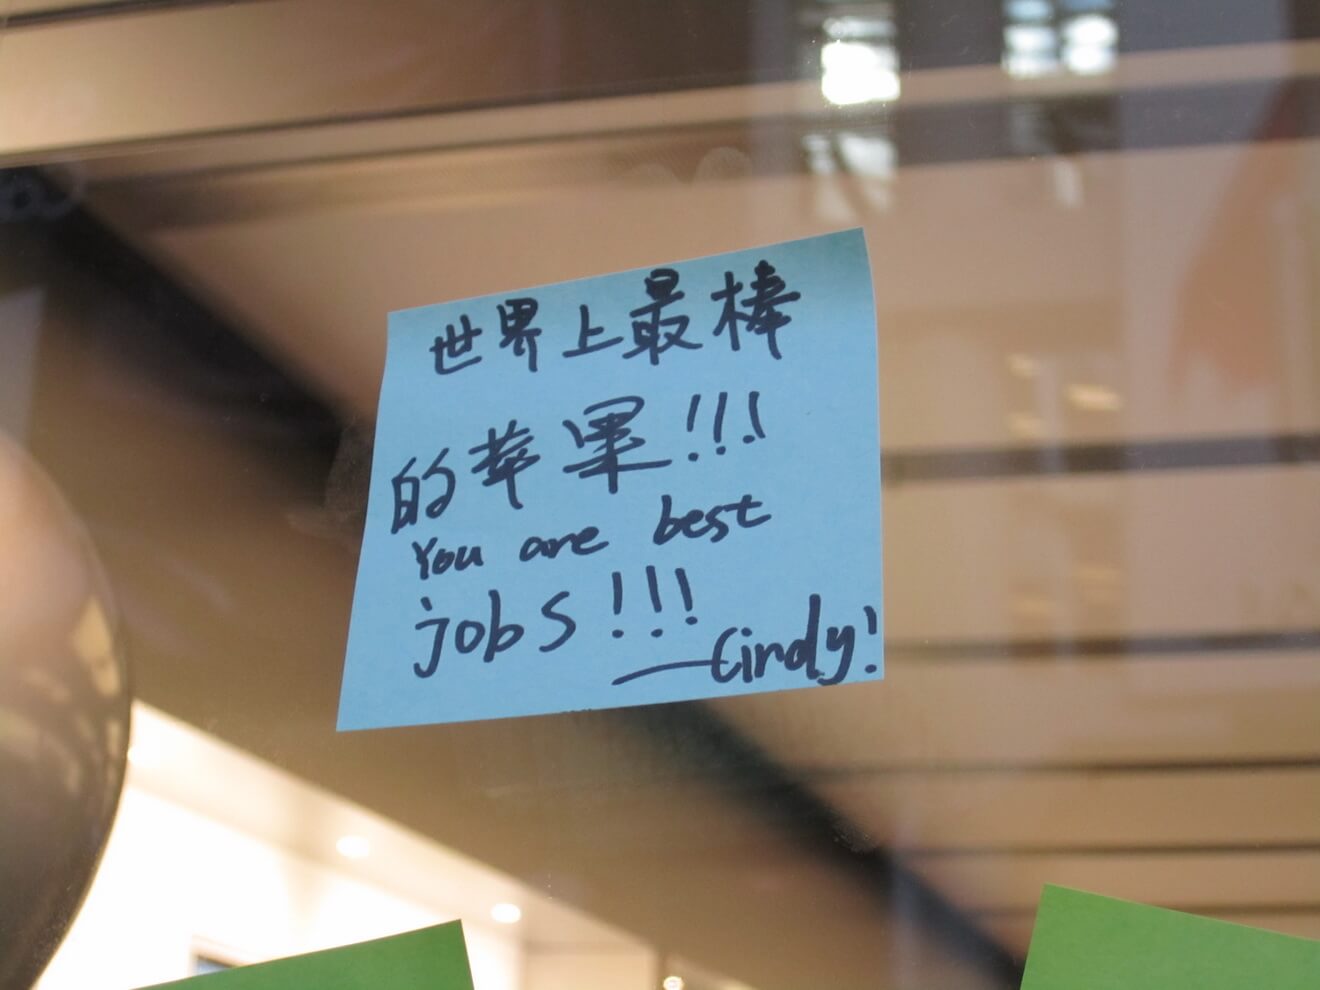 世界上最棒
的苹果!!!
You are best
jobs!!!
——Cindy!